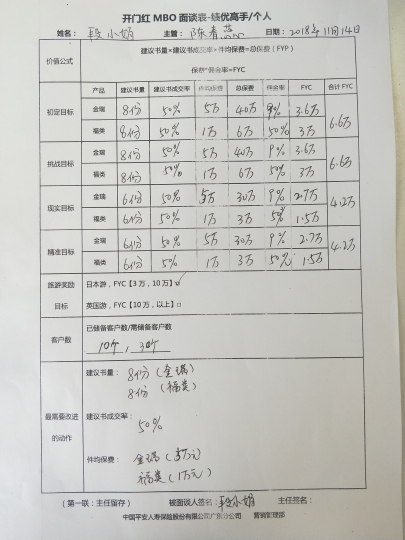 开门红 MBO 面谈表-绩优高手/个人
姓名： 段小娟 主管： 陈青蕊 日期： 2018年11月14日
价值公式
建议书量×建议书成交率×件均保费=总保费（FYP）
保费*佣金率=FYC
产品 建议书量 建议书成交率 件均保费 总保费 佣金率 FYC 合计 FYC
初定目标 金瑞 8份 50% 5万 40万 9% 3.6万 6.6万
福类 8份 50% 1万 6万 50% 3万
挑战目标 金瑞 8份 50% 5万 40万 9% 3.6万 6.6万
福类 8份 50% 1万 6万 50% 3万
现实目标 金瑞 6份 50% 5万 30万 9% 2.7万 4.2万
福类 6份 50% 1万 3万 50% 1.5万
精准目标 金瑞 6份 50% 5万 30万 9% 2.7万 4.2万
福类 6份 50% 1万 3万 50% 1.5万
旅游奖励目标
日本游，FYC【3万，10万】√
英国游，FYC【10万，以上】□
客户数
已储备客户数/需储备客户数
10个，30个
最需要改进的动作
建议书量： 8份（金瑞）
8份（福类）
建议书成交率：
50%
件均保费：
金瑞（5万元）
福类（1万元）
（第一联：主任留存） 被面谈人签名： 段小娟 主任签名：
中国平安人寿保险股份有限公司广东分公司 营销管理部